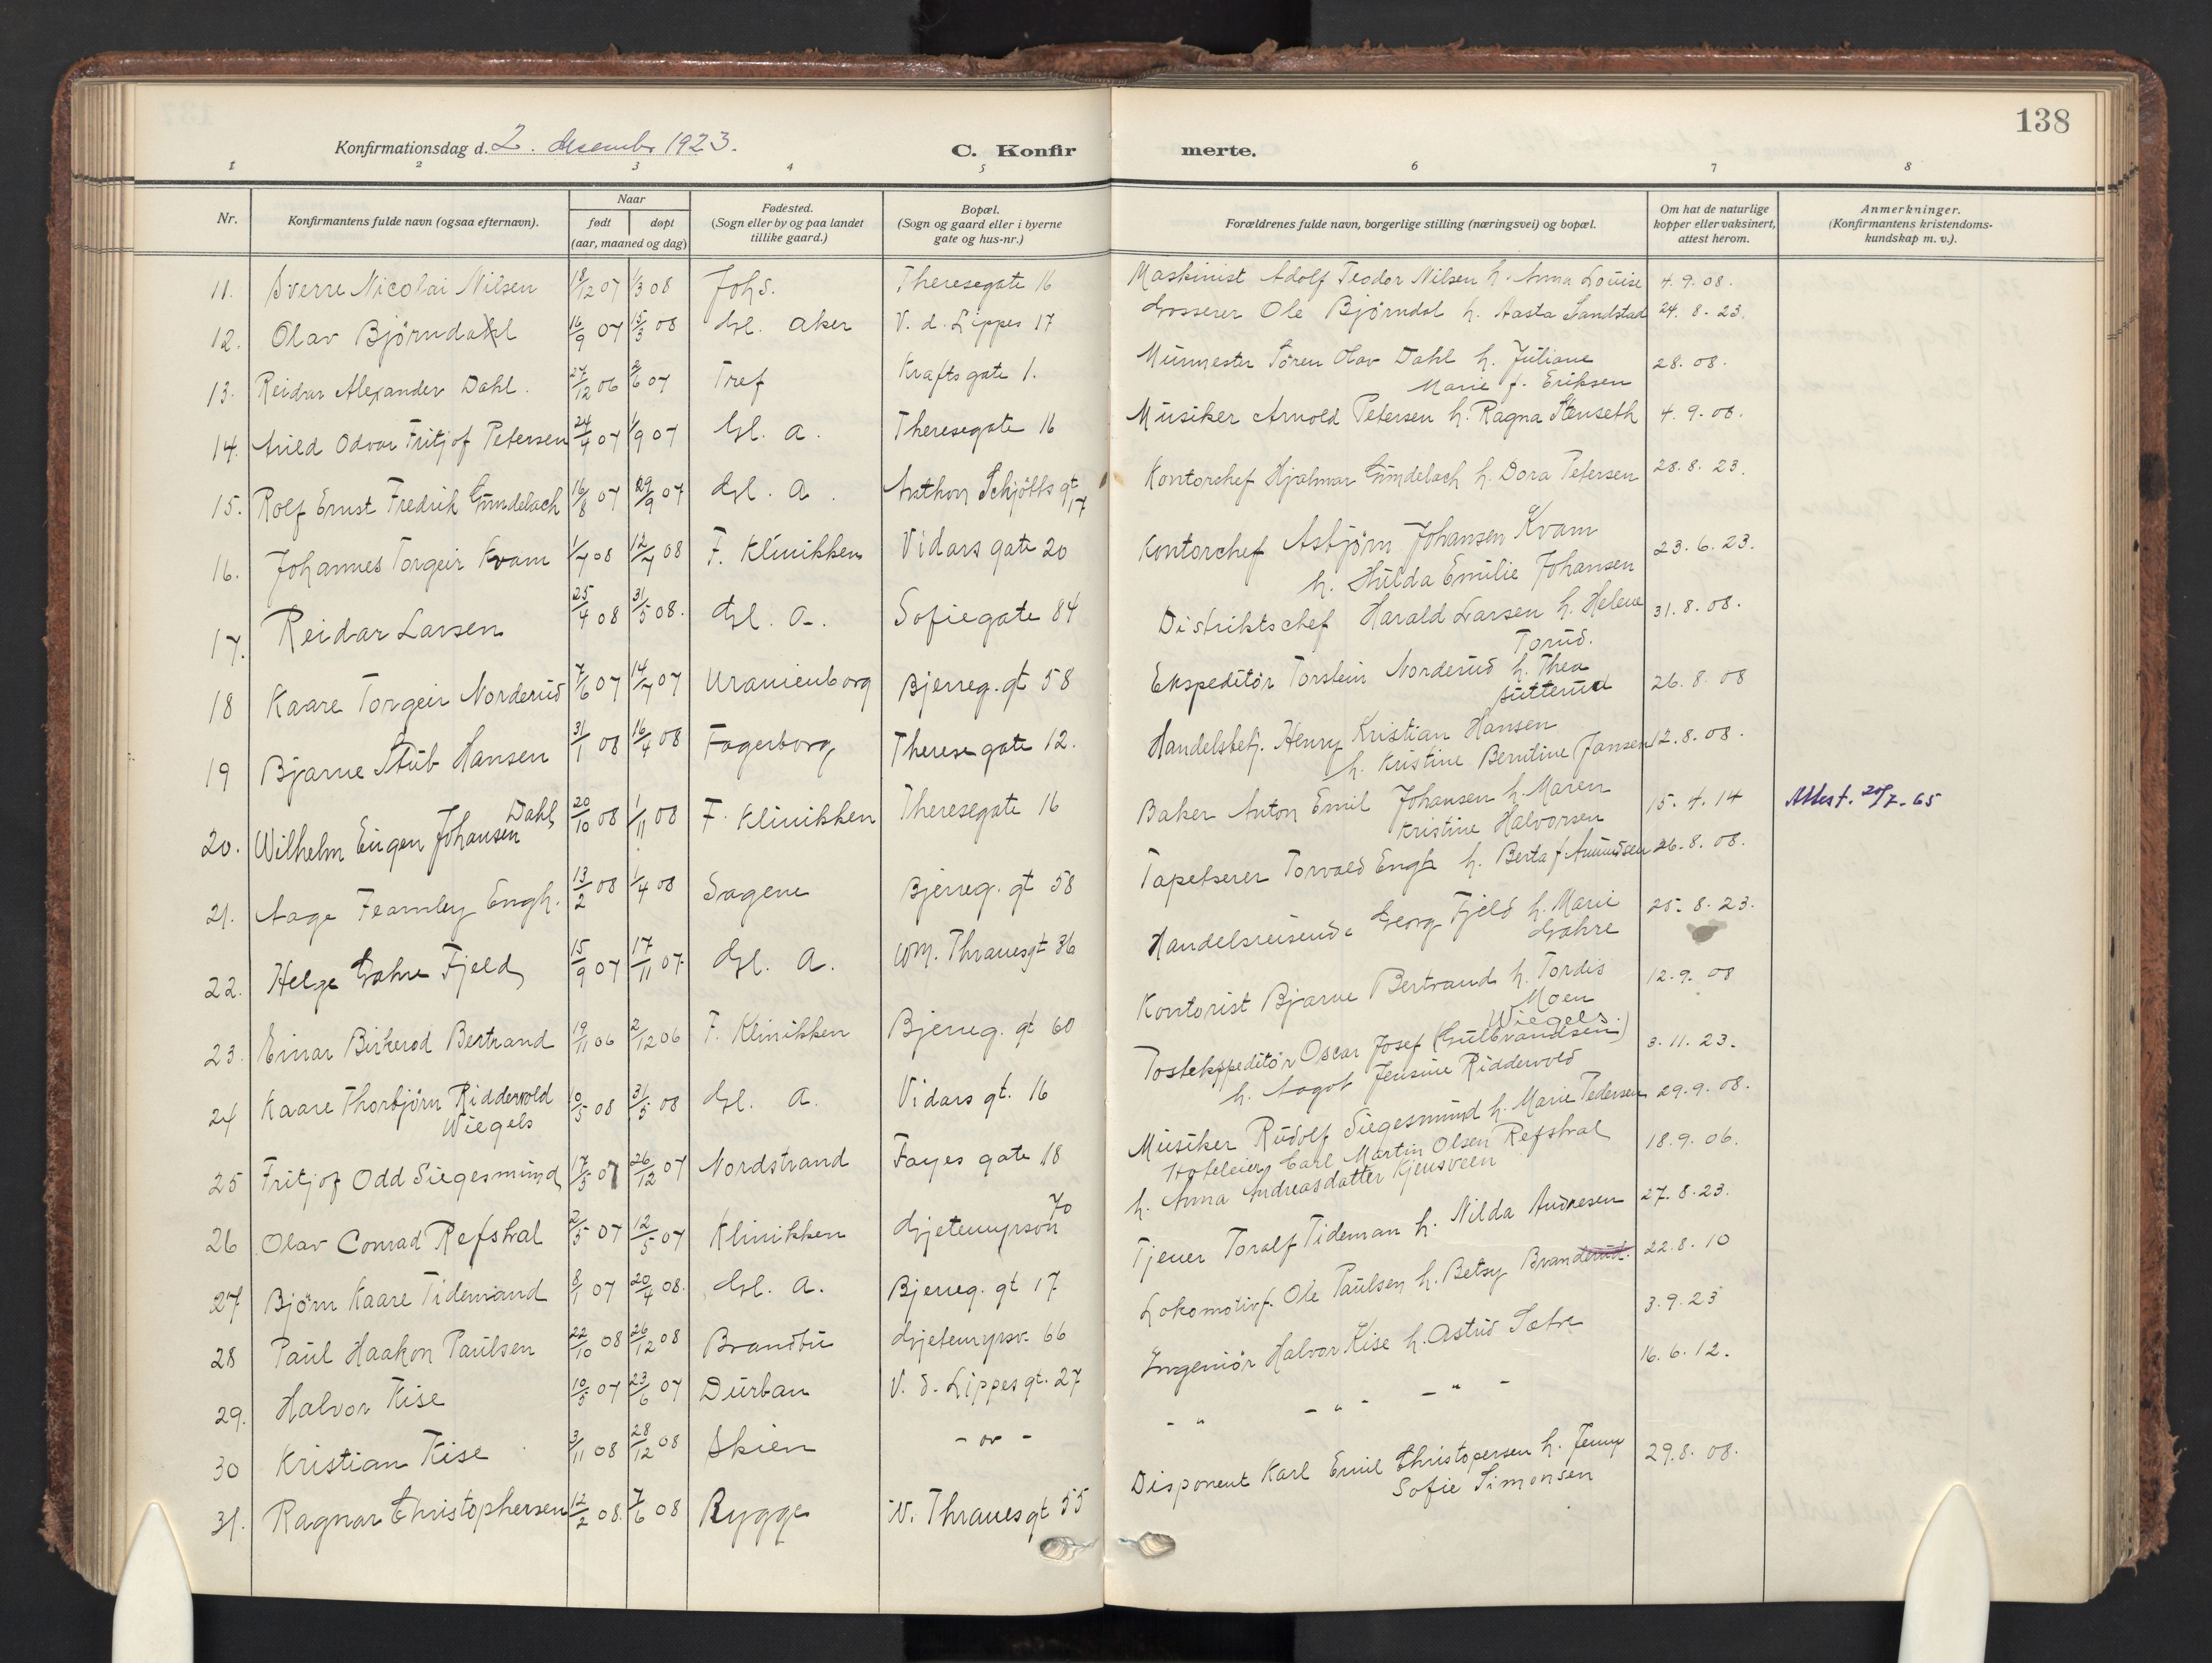 138
Konfirmationsdag d. 2. desember 1923.
C. Konfirmerte.
1 2 3 4 5 6 7 8
Nr.
Konfirmantens fulde navn (ogsaa efternavn).
Naar
født døpt
(aar, maaned og dag)
Fødested.
(Sogn eller by og paa landet
tillike gaard.)
Bopæl.
(Sogn og gaard eller i byerne
gate og hus-nr.)
Forældrenes fulde navn, borgerlige stilling (næringsvei) og bopæl.
Om hat de naturlige
kopper eller vaksinert,
attest herom.
Anmerkninger.
(Konfirmantens kristendoms-
kundskap m. v.).
11. Sverre Nicolai Nilsen 18/12 07 1/3 08 Johs. Theresegate 16 Maskinist Adolf Teodor Nilsen h. Anna Louise 4. 9. 08.
12. Olav Bjørndahl 16/9 07 15/3 08 Gl. Aker V. d. Lippes 17 Grosserer Ole Bjørndal h. Aasta Sandstad 24. 8. 23.
13. Reidar Alexander Dahl. 27/12 06 2/6 07 Tref Krafts gate 1. Murmester Søren Olav Dahl h. Juliane
Marie f. Eriksen 28. 08.
14. Arild Odvar Fritjof Petersen 24/4 07 1/9 07 Gl. A. Theresegate 16 Musiker Arnold Petersen h. Ragna Stenseth 4. 9. 08.
15. Rolf Ernst Fredrik Gundelach 16/8 07 29/9 07 Gl. A. Anthon Schjøtts gt 17 Kontorchef Hjalmar Gundelach h. Dora Petersen 28. 8. 23.
16. Johannes Torgeir Kvam 1/7 08 12/7 08 F. Klinikken Vidars gate 20 Kontorchef Asbjørn Johansen Kvam
h. Hulda Emilie Johansen 23. 6. 23.
17. Reidar Larsen 25/4 08 31/5 08. Gl. A. Sofiegate 84 Distriktschef Harald Larsen h. Helene
Torud. 31. 8. 08.
18 Kaare Torgeir Norderud 7/6 07 14/7 07 Uranienborg Bjerreg. gt 58 Ekspeditør Torstein Norderud h. Thea
Sutterud 26. 8. 08
19 Bjarne Stub Hansen 31/1 08 16/4 08 Fagerborg Therese gate 12. Handelsbetj. Henry Kristian Hansen
h. Kristine Berntine Jansen 12. 8. 08.
Dahl
20. Wilhelm Eugen Johansen 20/10 08 1/11 08 F. Klinikken Theresegate 16 Baker Anton Emil Johansen h. Maren
Kristine Halvorsen 15. 4. 14 Attest. 20/7. 65
21. Aage Fearnley Engh. 13/2 08 1/4 08 Sagene Bjerreg. gt 58 Tapetserer Torvald Engh h. Berta f. Amundsen 26. 8. 08.
22. Helge Gahre Fjeld 15/9 07 17/11 07. Gl. A. WM. Thranesgt 36 Handelsreisende Georg Fjeld h. Marie
Gahre 25. 8. 23.
23. Einar Birkerod Bertrand 19/11 06 2/12 06 F. Klinikken Bjerreg. gt 60 Kontorist Bjarne Bertrand h. Tordis
Moen 12. 9. 08
Wiegels.
24 Kaare Thorbjørn Riddervold
Wiegels 10/5 08 31/5 08 Gl. A. Vidars gt. 16 Postekspeditør Oscar Josef (Gulbrandsen)
h. Aagot Jensine Riddervold 3. 11. 23.
25 Fritjof Odd Siegesmund 17/5 07 26/12 07 Nordstrand Fayes gate 18 Musiker Rudolf Siegesmund h. Marie Pedersen 29. 9. 08.
26 Olav Conrad Refsbal 2/5 07 12/5 07 Klinikken Gjetemyrsvn 70 Hoteleier Carl Martin Olsen Refsbal
h. Anna Andreasdatter Kjensveen 18. 9. 06.
27 Bjørn Kaare Tidemand 8/1 07 20/4 08. Gl. A. Bjerreg. gt 17 Tjener Toralf Tideman h. Nilda Andresen 27. 8. 23.
28 Paul Haakon Paulsen 22/10 08 26/12 08 Brandbu Gjetemyrsv. 66 Lokomotivf. Ole Paulsen h. Betsy Branderud. 22. 8. 10
29. Halvor Kise 10/5 07 23/6 07 Durban V. d. Lippesgt. 27 Ingeniør Halvor Kise h. Astrid Sætre 3. 9. 23
30 Kristian Kise 3/11 08 28/12 08 Skien - " - - " - " - - " - 16. 6. 12.
31. Ragnar Christophersen 12/2 08. 7/6 08 Rygge W. Thranes gt 55 Disponent Karl Emil Christopersen h. Jenny
Sofie Simonsen 29. 8. 08.